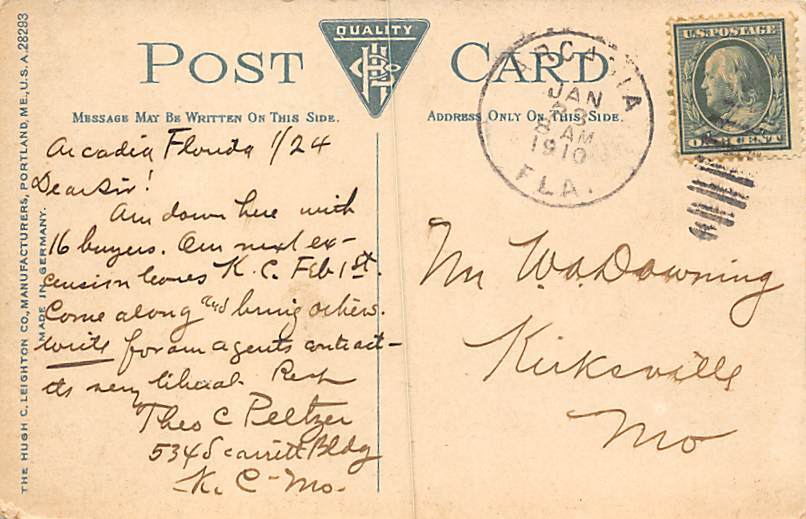 THE HUGH C. LEIGHTON CO., MANUFACTURERS, PORTLAND, ME., U.S.A. 28293
MADE IN GERMANY.
QUALITY
POST CARD
MESSAGE MAY BE WRITTEN ON THIS SIDE.
ADDRESS ONLY ON THIS SIDE.
ARCADIA
JAN
23
8 AM
1910
FLA.
U.S. POSTAGE
ONE CENT
Arcadia Florida 1/24
Dear Sir!
Am down here with
16 buyers. Our next ex-
cursion leaves K.C. Feb 1st.
Come along and bring others.
Write for our agents contract -
its very liberal. Resp
Theo C Peltzer
534 Scarritt Bldg
K. C - Mo.
Mr W.A. Downing
Kirksville
Mo